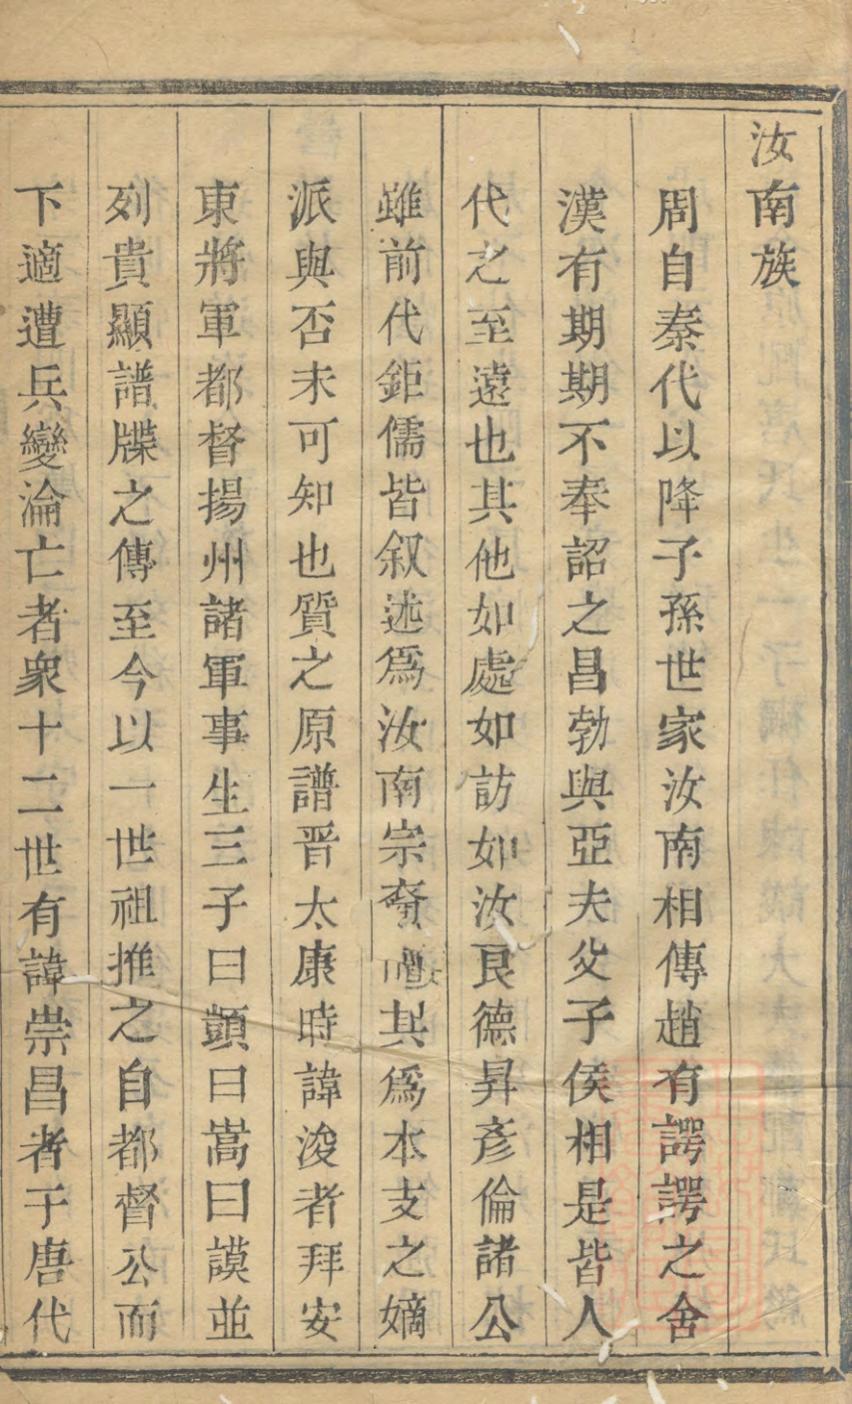 汝南族
周自秦代以降子孫世家汝南相傳趙有諤諤之舍
漢有期期不奉詔之昌勃與亞夫父子侯相是皆人
代之至遠也其他如處如訪如汝良德昇彥倫諸公
雖前代鉅儒皆叙述爲汝南宗裔其爲本支之嫡
派與否未可知也質之原譜晋太康時諱浚者拜安
東將軍都督揚州諸軍事生三子曰顗曰嵩曰謨並
列貴顯譜牒之傳至今以一世祖推之自都督公而
下適遭兵變淪亡者衆十二世有諱崇昌者于唐代